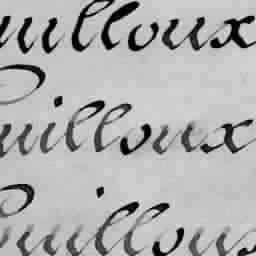 uilloux
Guilloux
Guilloux